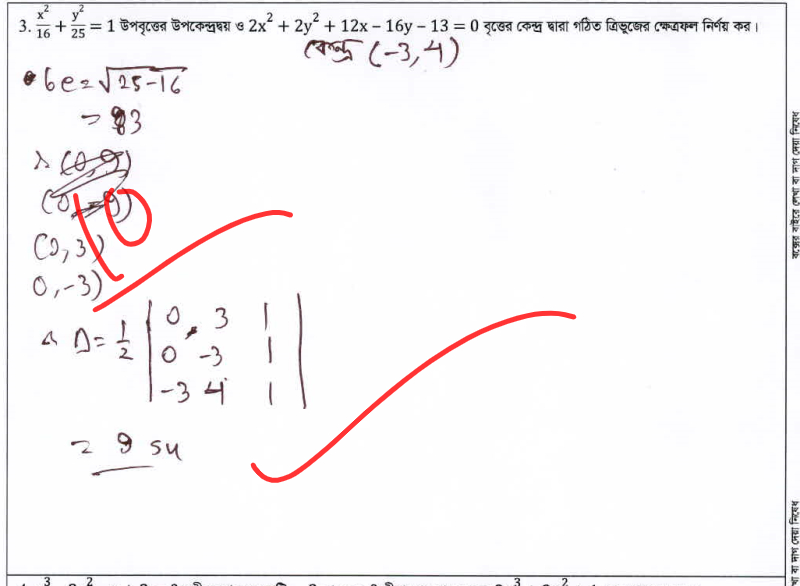 3. x²/16 + y²/25 = 1 উপবৃত্তের উপকেন্দ্রদ্বয় ও 2x² + 2y² + 12x – 16y – 13 = 0 বৃত্তের কেন্দ্র দ্বারা গঠিত ত্রিভুজের ক্ষেত্রফল নির্ণয় কর।
কেন্দ্র (-3, 4)
be = √25-16
= 3
(0, 3)
0, -3)
10
∴ Δ = 1/2 | 0, 3 1
0 -3 1
-3 4 1 |
= 9 su
বক্সের বাইরে লেখা বা দাগ দেয়া নিষেধ
বা দাগ দেয়া নিষেধ